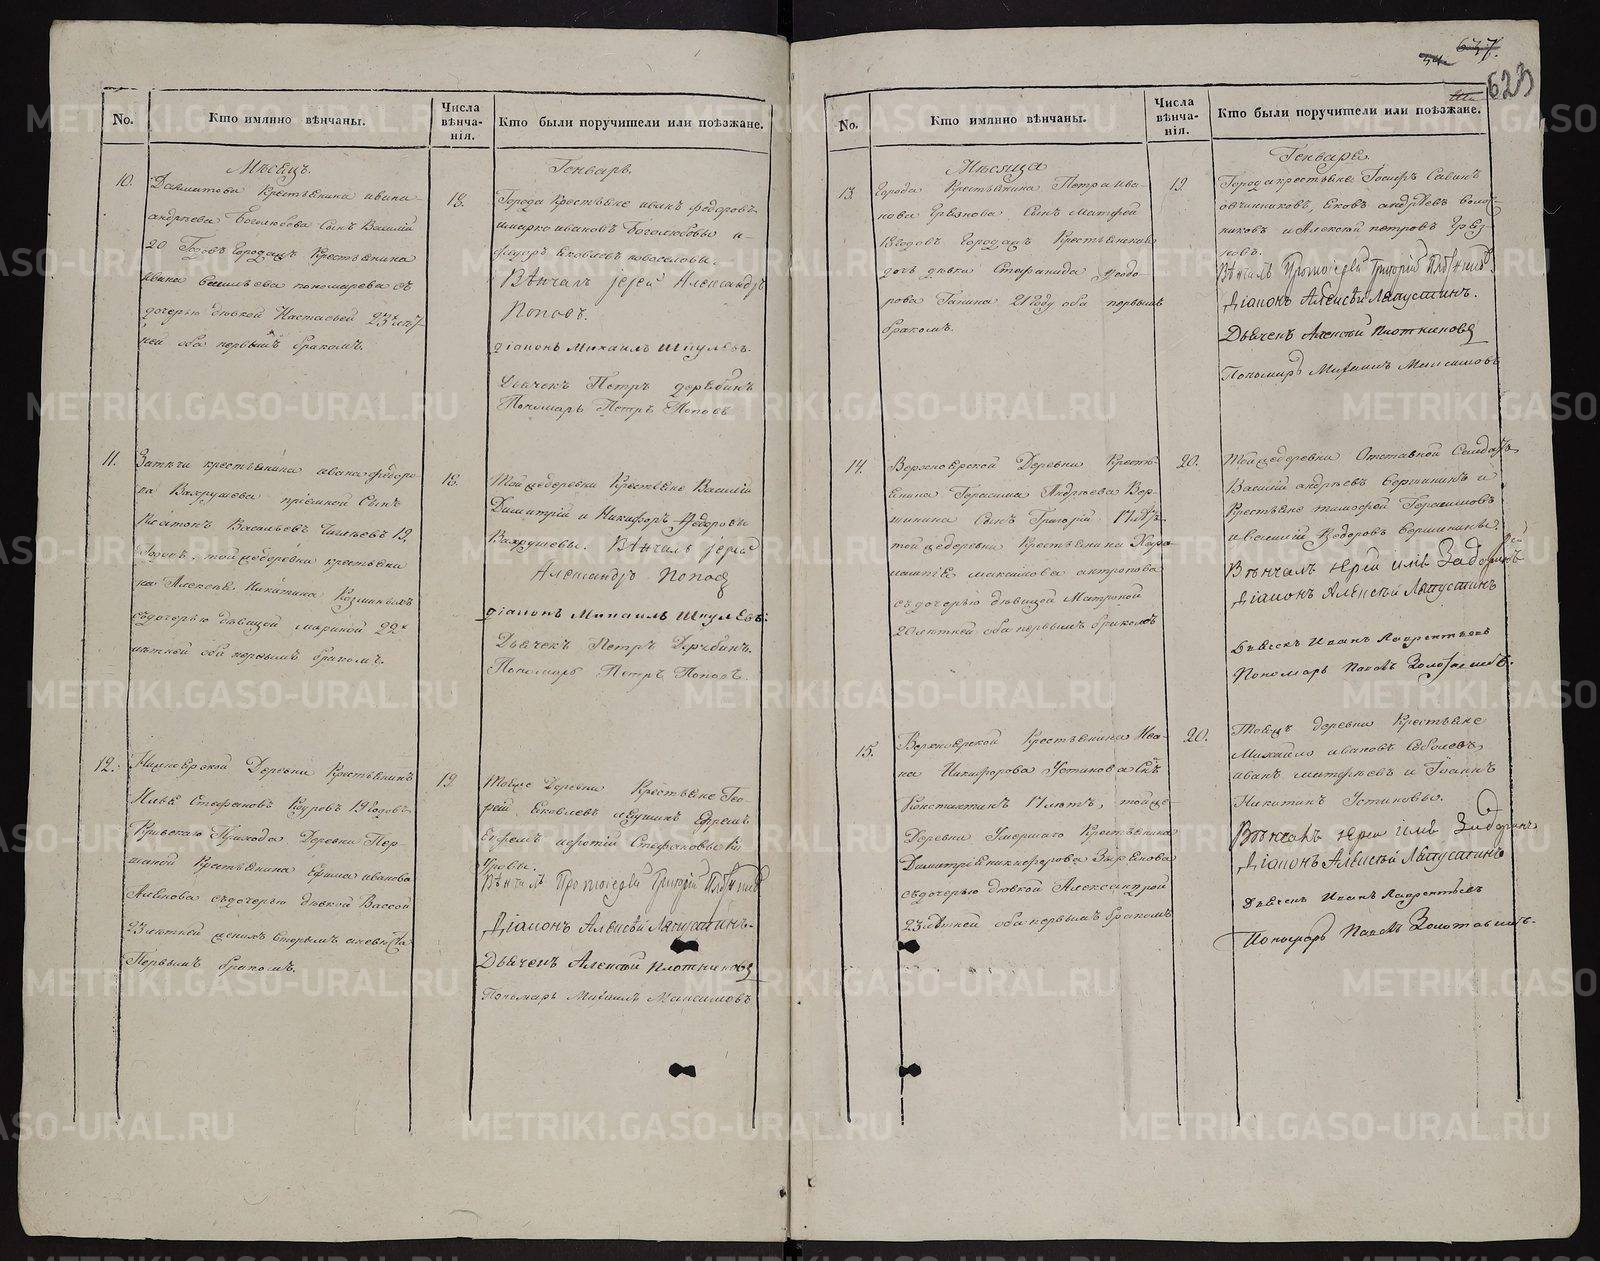 No.
Кто имянно вѣнчаны.
Числа
вѣнча-
нія.
Кто были поручители или поѣзжане.
Мѣсецъ.
Генварь.
10.
Давматова Крестьянина ивана
андрѣева Боголюбова Сынъ Василій
20 Годовъ Крестьянина
ивана пономарева съ
дочерью дѣвкой Настасьей 23 лѣт-
ней оба первымъ бракомъ.
18.
Города Крестьяне иванъ федоровъ
имарко ивановъ Боголюбовы и
Яковлевъ новоселовы.
Вѣнчалъ јерей Александръ
Поповъ.
діаконъ Михаилъ Шпулевъ.
Дьячекъ Петръ дерябинъ
Пономарь Петръ Поповъ
11.
крестьянина ивана федоро
ва Вахрушева пріемной Сынъ
Платонъ Васильевъ 19.
Годовъ, тойжедеревни крестьяни
на Алексея Никитина
съдочерью дѣвицей Мариной 22х
лѣтней оба первымъ бракомъ.
18.
Тойжедеревни Крестьяне Василій
Димитрій и Никифоръ Федоровы
Вахрушевы. Вѣнчалъ јерей
Александръ Поповъ
діаконъ Михаилъ Шпулевъ.
Дьячекъ Петръ Дерябинъ.
Пономарь Петръ Поповъ.
12.
Деревни Крестьянинъ
Илья Стефановъ Кауровъ 19 Годовъ
Прихода Деревни Пер-
шиной Крестьянина Ефима иванова
съдочерью дѣвкой Вассой
23 лѣтней женихъ вторымъ аневѣста
Первымъ бракомъ.
19
Тойже Деревни Крестьяне Гео-
ргій Яковлевъ Ефремъ
Стефановы Ка
уровы.
Вѣнчалъ Протоіерей Григорій Плотниковъ
Діаконъ Алексѣй Лапустинъ.
Дьячекъ Алексѣй Плотниковъ
Пономарь Михаилъ Максимовъ
54.
637.
623
No.
Кто имянно вѣнчаны.
Числа
вѣнча-
нія.
Кто были поручители или поѣзжане.
Мѣсяца
Генваре.
13.
Города Крестьянина Петра ива-
нова Грязнова Сынъ Матфей
18 годовъ Городацъ Крестьянина
дочь дѣвка Стефанида Федо-
рова Ганина 21 Году оба первымъ
бракомъ.
19.
Города крестьяне Іосифъ Савинъ
овчинниковъ, Яковъ андрѣевъ
никовъ и Алексѣй петровъ Гряз-
новъ.
Вѣнчалъ Протоіерей Григорій Плотниковъ.
Діаконъ Алексѣй Лапустинъ.
Дьячекъ Алексѣй Плотниковъ
Пономарь Михаилъ Максимовъ
14.
Верхноярской Деревни Кресть-
янина Герасима Андрѣева Вер-
шинина Сынъ Григорій 17 лѣтъ
тойжедеревни Крестьянина Хара-
лампіѣ максимова антропова
съдочерью дѣвицей Матроной
20 лѣтней оба первымъ бракомъ
20.
Тойжедеревни Отставной Солдатъ
Василій андрѣевъ Вершининъ и
Крестьяне тимофей Герасимовъ
иВасилій Федоровъ Вершинины.
Вѣнчалъ Іерей Илія Задоринъ
Діаконъ Алексѣй Лапустинъ
Дьячекъ Иванъ Лаврентьевъ
Пономарь Павелъ Золотавинъ.
15.
Верхноярской Крестьянина Ива-
на Никифорова Устинова Снъ
Константинъ 17 лѣтъ, тойже
Деревни Умершаго Крестьянина
Димитрія никифорова Зырянова
съдочерью дѣвкой Александрой
23 лѣтней оба первымъ бракомъ
20.
Тойжъ деревни Крестьяне
Михайло ивановъ Соболевъ,
иванъ матфѣевъ и Іоаннъ
Никитинъ Устиновы.
Вѣнчалъ Іереи Іліѣ Задоринъ
Діаконъ Алексѣй Лапустинъ
Дьячекъ Иванъ Лаврентьевъ
Пономарь Павелъ Золотавинъ.
METRIKI.GASO-URAL.RU